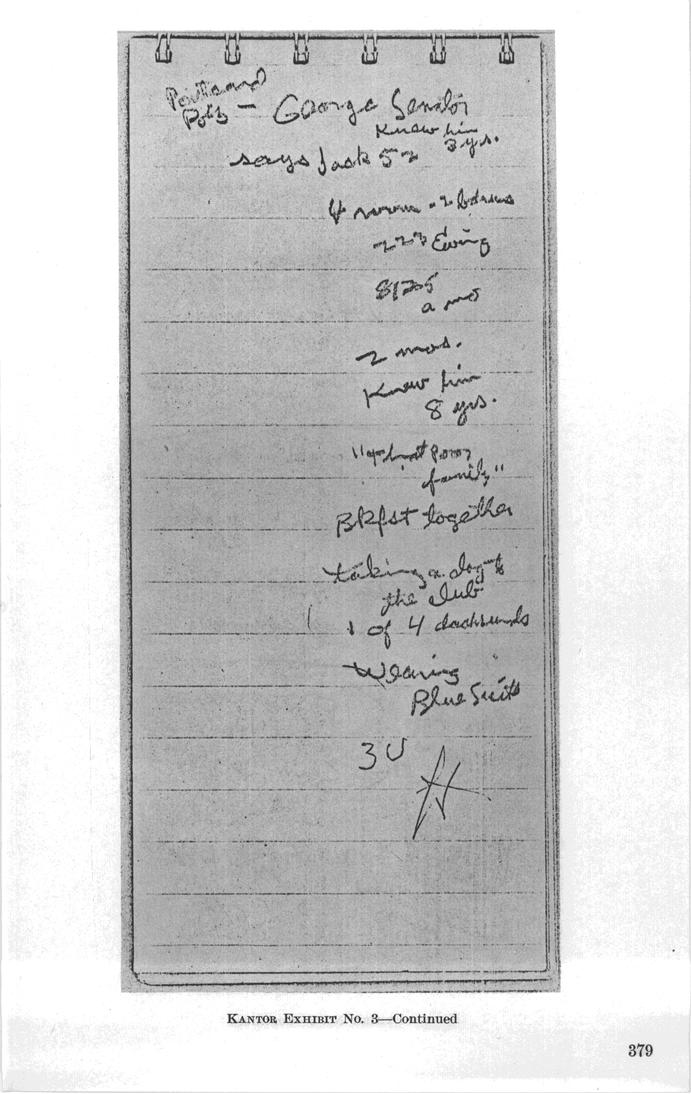 George Senator
Knew him
says Jack 52 3 yrs.
4 room - 2 bdrms
223 Ewing
$125
a mo
2 mos.
Knew him
8 yrs.
poor
family"
Bkfst together
taking a dog to
the club
1 of 4 dachsunds
Wearing
Blue Suit
3
KANTOR EXHIBIT No. 3—Continued
379